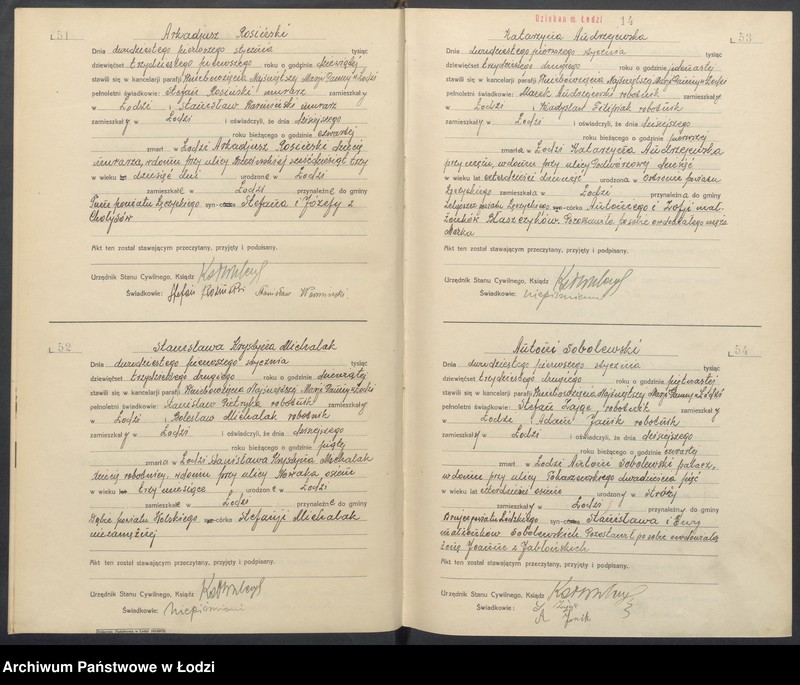 51
Arkadjusz Rosiński
Dnia dwudziestego pierwszego stycznia tysiąc
dziewięćset trzydziestego pierwszego roku o godzinie dziewiątej
stawili się w kancelarji parafji Wniebowzięcia Najświętszej Marji Panny w Łodzi
pełnoletni świadkowie: Stefan Rosiński murarz zamieszkały
w Łodzi i Stanisław murarz
zamieszkały w Łodzi i oświadczyli, że dnia dzisiejszego
roku bieżącego o godzinie czwartej
zmarł w Łodzi Arkadjusz Rosiński dziecię
murarza, w domu przy ulicy sześćdziesiąt trzy
w wieku dziesięć dni urodzone w Łodzi
zamieszkałe w Łodzi przynależne do gminy
powiatu Łęczyckiego syn-córka Stefana i Józefy z
Cholysów
Akt ten został stawającym przeczytany, przyjęty i podpisany.
Urzędnik Stanu Cywilnego, Ksiądz
Świadkowie: Stefan Rosiński Stanisław
52
Stanisława Krystyna Michalak
Dnia dwudziestego pierwszego stycznia tysiąc
dziewięćset trzydziestego drugiego roku o godzinie dziewiątej
stawili się w kancelarji parafji Wniebowzięcia Najświętszej Marji Panny w Łodzi
pełnoletni świadkowie: Stanisław Pietrzyk robotnik zamieszkały
w Łodzi i Bolesław Michalak robotnik
zamieszkały w Łodzi i oświadczyli, że dnia dzisiejszego
roku bieżącego o godzinie piątej
zmarła w Łodzi Stanisława Krystyna Michalak
dziecię robotnicy, w domu przy ulicy Nowaka, osiem
w wieku trzy miesiące urodzone w Łodzi
zamieszkałe w Łodzi przynależne do gminy
powiatu Kolskiego syn-córka Stefanji Michalak
niezamężnej
Akt ten został stawającym przeczytany, przyjęty i podpisany.
Urzędnik Stanu Cywilnego, Ksiądz
Świadkowie: Niepiśmienni
Dziekan m. Łodzi 14
53
Katarzyna Andrzejewska
Dnia dwudziestego pierwszego stycznia tysiąc
dziewięćset trzydziestego drugiego roku o godzinie jedenastej
stawili się w kancelarji parafji Wniebowzięcia Najświętszej Marji Panny w Łodzi
pełnoletni świadkowie: Marek Andrzejewski robotnik zamieszkały
w Łodzi i Władysław Filipiak robotnik
zamieszkały w Łodzi i oświadczyli, że dnia dzisiejszego
roku bieżącego o godzinie pierwszej
zmarła w Łodzi Katarzyna Andrzejewska
przy mężu, w domu przy ulicy Podwórzowej dziesięć
w wieku lat czterdzieści dziewięć urodzona w powiatu
Łęczyckiego zamieszkała w Łodzi przynależna do gminy
powiatu Łęczyckiego syn-córka Antoniego i Zofji mał-
żonków Błaszczyków. Pozostawiła po sobie owdowiałego męża
Marka
Akt ten został stawającym przeczytany, przyjęty i podpisany.
Urzędnik Stanu Cywilnego, Ksiądz
Świadkowie: niepiśmienni
54
Antoni Sobolewski
Dnia dwudziestego pierwszego stycznia tysiąc
dziewięćset trzydziestego drugiego roku o godzinie piętnastej
stawili się w kancelarji parafji Wniebowzięcia Najświętszej Marji Panny w Łodzi
pełnoletni świadkowie: Stefan Zając robotnik zamieszkały
w Łodzi i Adam Janik robotnik
zamieszkały w Łodzi i oświadczyli, że dnia dzisiejszego
roku bieżącego o godzinie czwartej
zmarł w Łodzi Antoni Sobolewski palacz,
w domu przy ulicy Tokarzewskiego dwadzieścia pięć
w wieku lat czterdzieści osiem urodzony w Stróży
zamieszkały w Łodzi przynależny do gminy
Brójce powiatu Łódzkiego syn-córka Stanisława i Ewy
małżonków Sobolewskich. Pozostawił po sobie owdowiałą
żonę Joannę z Jabłońskich
Akt ten został stawającym przeczytany, przyjęty i podpisany.
Urzędnik Stanu Cywilnego, Ksiądz
Świadkowie: S. Zając
A. Janik
Archiwum Państwowe w Łodzi